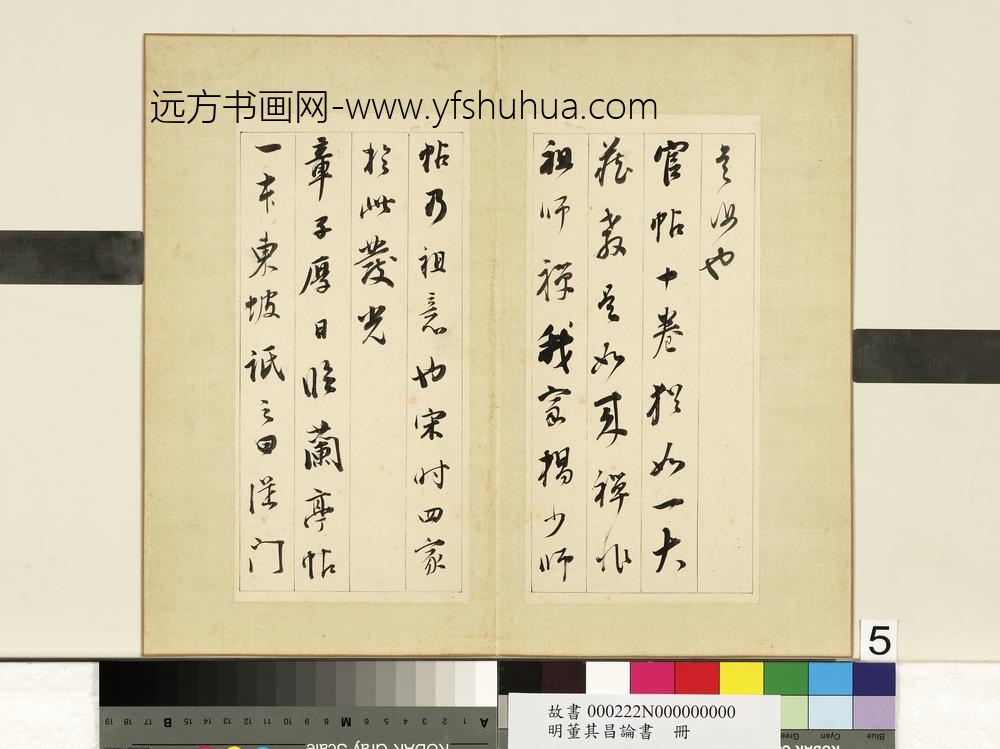 远方书画网-www.yfshuhua.com
也
官帖十卷猶如一大
藏教是如来禅非
祖师禅我家楊少师
帖乃祖意也宋时四家
於此發光
章子厚日临蘭亭帖
一本東坡诋之曰從门
5
19 18 17 16 15 B 14 13 12 11 10 9 8 M 7 6 5 4 3 2 1 A
KODAK Gray Scale
Blue Cyan Green
故書 000222N000000000
明董其昌論書 冊